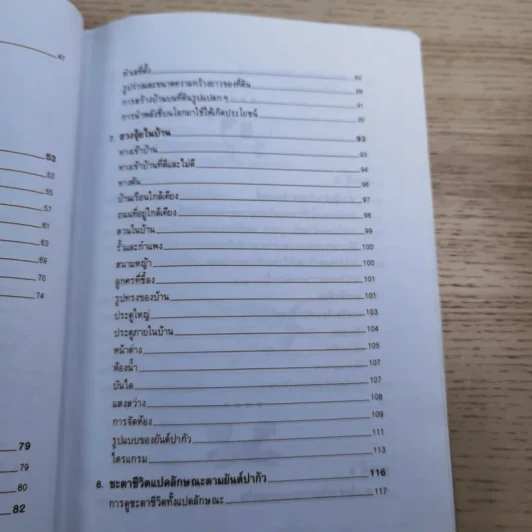 47
53
53
55
57
61
62
69
70
74
79
79
80
82
ทำเลที่ตั้ง 82
รูปร่างและขนาดความกว้างยาวของที่ดิน 89
การสร้างบ้านบนที่ดินรูปแปลก ๆ 91
การนำพลังชี่บนโลกมาใช้ให้เกิดประโยชน์ 92
7. ฮวงจุ้ยในบ้าน 93
ทางเข้าบ้าน 93
ทางเข้าบ้านที่ดีและไม่ดี 94
ทางตัน 96
บ้านเรือนใกล้เคียง 97
ถนนที่อยู่ใกล้เคียง 98
สวนในบ้าน 99
รั้วและกำแพง 100
สนามหญ้า 100
ลูกศรที่ชี้ลง 101
รูปทรงของบ้าน 101
ประตูใหญ่ 103
ประตูภายในบ้าน 104
หน้าต่าง 105
ห้องน้ำ 107
บันได 107
แสงสว่าง 108
การจัดห้อง 109
รูปแบบของยันต์ปากัว 111
ไตรแกรม 113
8. ชะตาชีวิตแปดลักษณะตามยันต์ปากัว 116
การดูชะตาชีวิตทั้งแปดลักษณะ 117